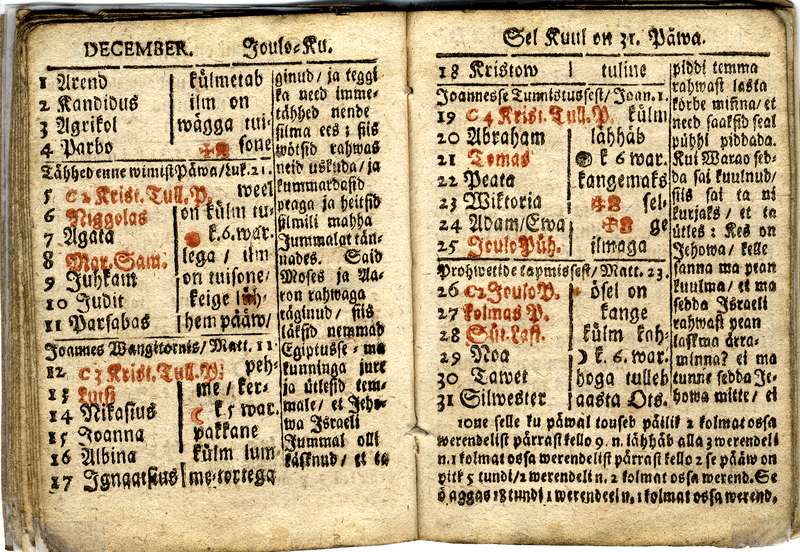 DECEMBER. Joulo-Ku.
1 Arend
2 Kandidus
3 Agrikol
4 Parbo
külmetab
ilm on
wägga tui-
sone
Tähhed enne wimist Päwa/Luk. 21.
5 C2 Krist. Tull. P.
6 Niggolas
7 Agata
8 Mar. Sam.
9 Juhkam
10 Judit
11 Parsabas
weel
on külm tu-
k. 6. war.
lega / ilm
on tuisone/
keige läh-
hem pääw/
Joannes Wangitornis/Matt. 11
12 C3 Krist. Tull. P.
13 Luts
14 Nikasius
15 Joanna
16 Albina
17 Ignaatsius
peh-
me / ker-
k. 5 war.
pakkane
külm lum-
me-tortega
ginud / ja teggi
ka need imme-
tähhed nende
silma ees ; siis
wötsid rahwas
neid uskuda / ja
kummardasid
peaga ja heitsid
silmili mahha
Jummalat tän-
nades. Said
Moses ja Aa-
ron rahwaga
räginud / siis
läksid nemmad
Egiptusse-ma
kunninga jure
ja ütlesid tem-
male / ei Jeho-
wa Israeli
Jummal olli
kässknud / et ta
Sel Kuul on 31. Päwa.
18 Kristow
tuline
Joannesse Tunnistussest/Joan. 1.
19 C4 Krist. Tull. P.
20 Abraham
21 Tomas
22 Peata
23 Wiktoria
24 Adam/Ewa
25 Joulo Püh.
külm
lähhäb
k 6. war.
kangemaks
sel-
ge
ilmaga
Prohwetide tapmissest/Matt. 23.
26 C2 Joulo P.
27 kolmas P.
28 Süt. Last.
29 Noa
30 Tawet
31 Silwester
ösel on
kange
külm kah-
k. 6. war.
hoga tulleb
aasta Ots.
piddi temma
rahwast lasta
körbe minna/et
need saaksid seal
pühhi piddada.
Kui Warao sed-
da sai kuulnud/
siis sai ta ni
kurjaks / et ta
ütles: Kes on
Jehowa / kelle
sanna ma pean
kuulma / et ma
sedda Israeli
rahwast pean
laskma ärra-
minna? ei ma
tunne sedda Je-
howa mitte / ei
10ne selle ku päwal touseb päilik 2 kolmat ossa
werendelist pärrast kello 9. n. lähhäb alla 3 werendeli
n. 1 kolmat ossa werendelist pärrast kello 2 se pääw on
pitk 5 tundi/2 werendeli n. 2 kolmat ossa werend. Se
ö aggas 18 tundi 1 werendeel n. 1 kolmat ossa werend.